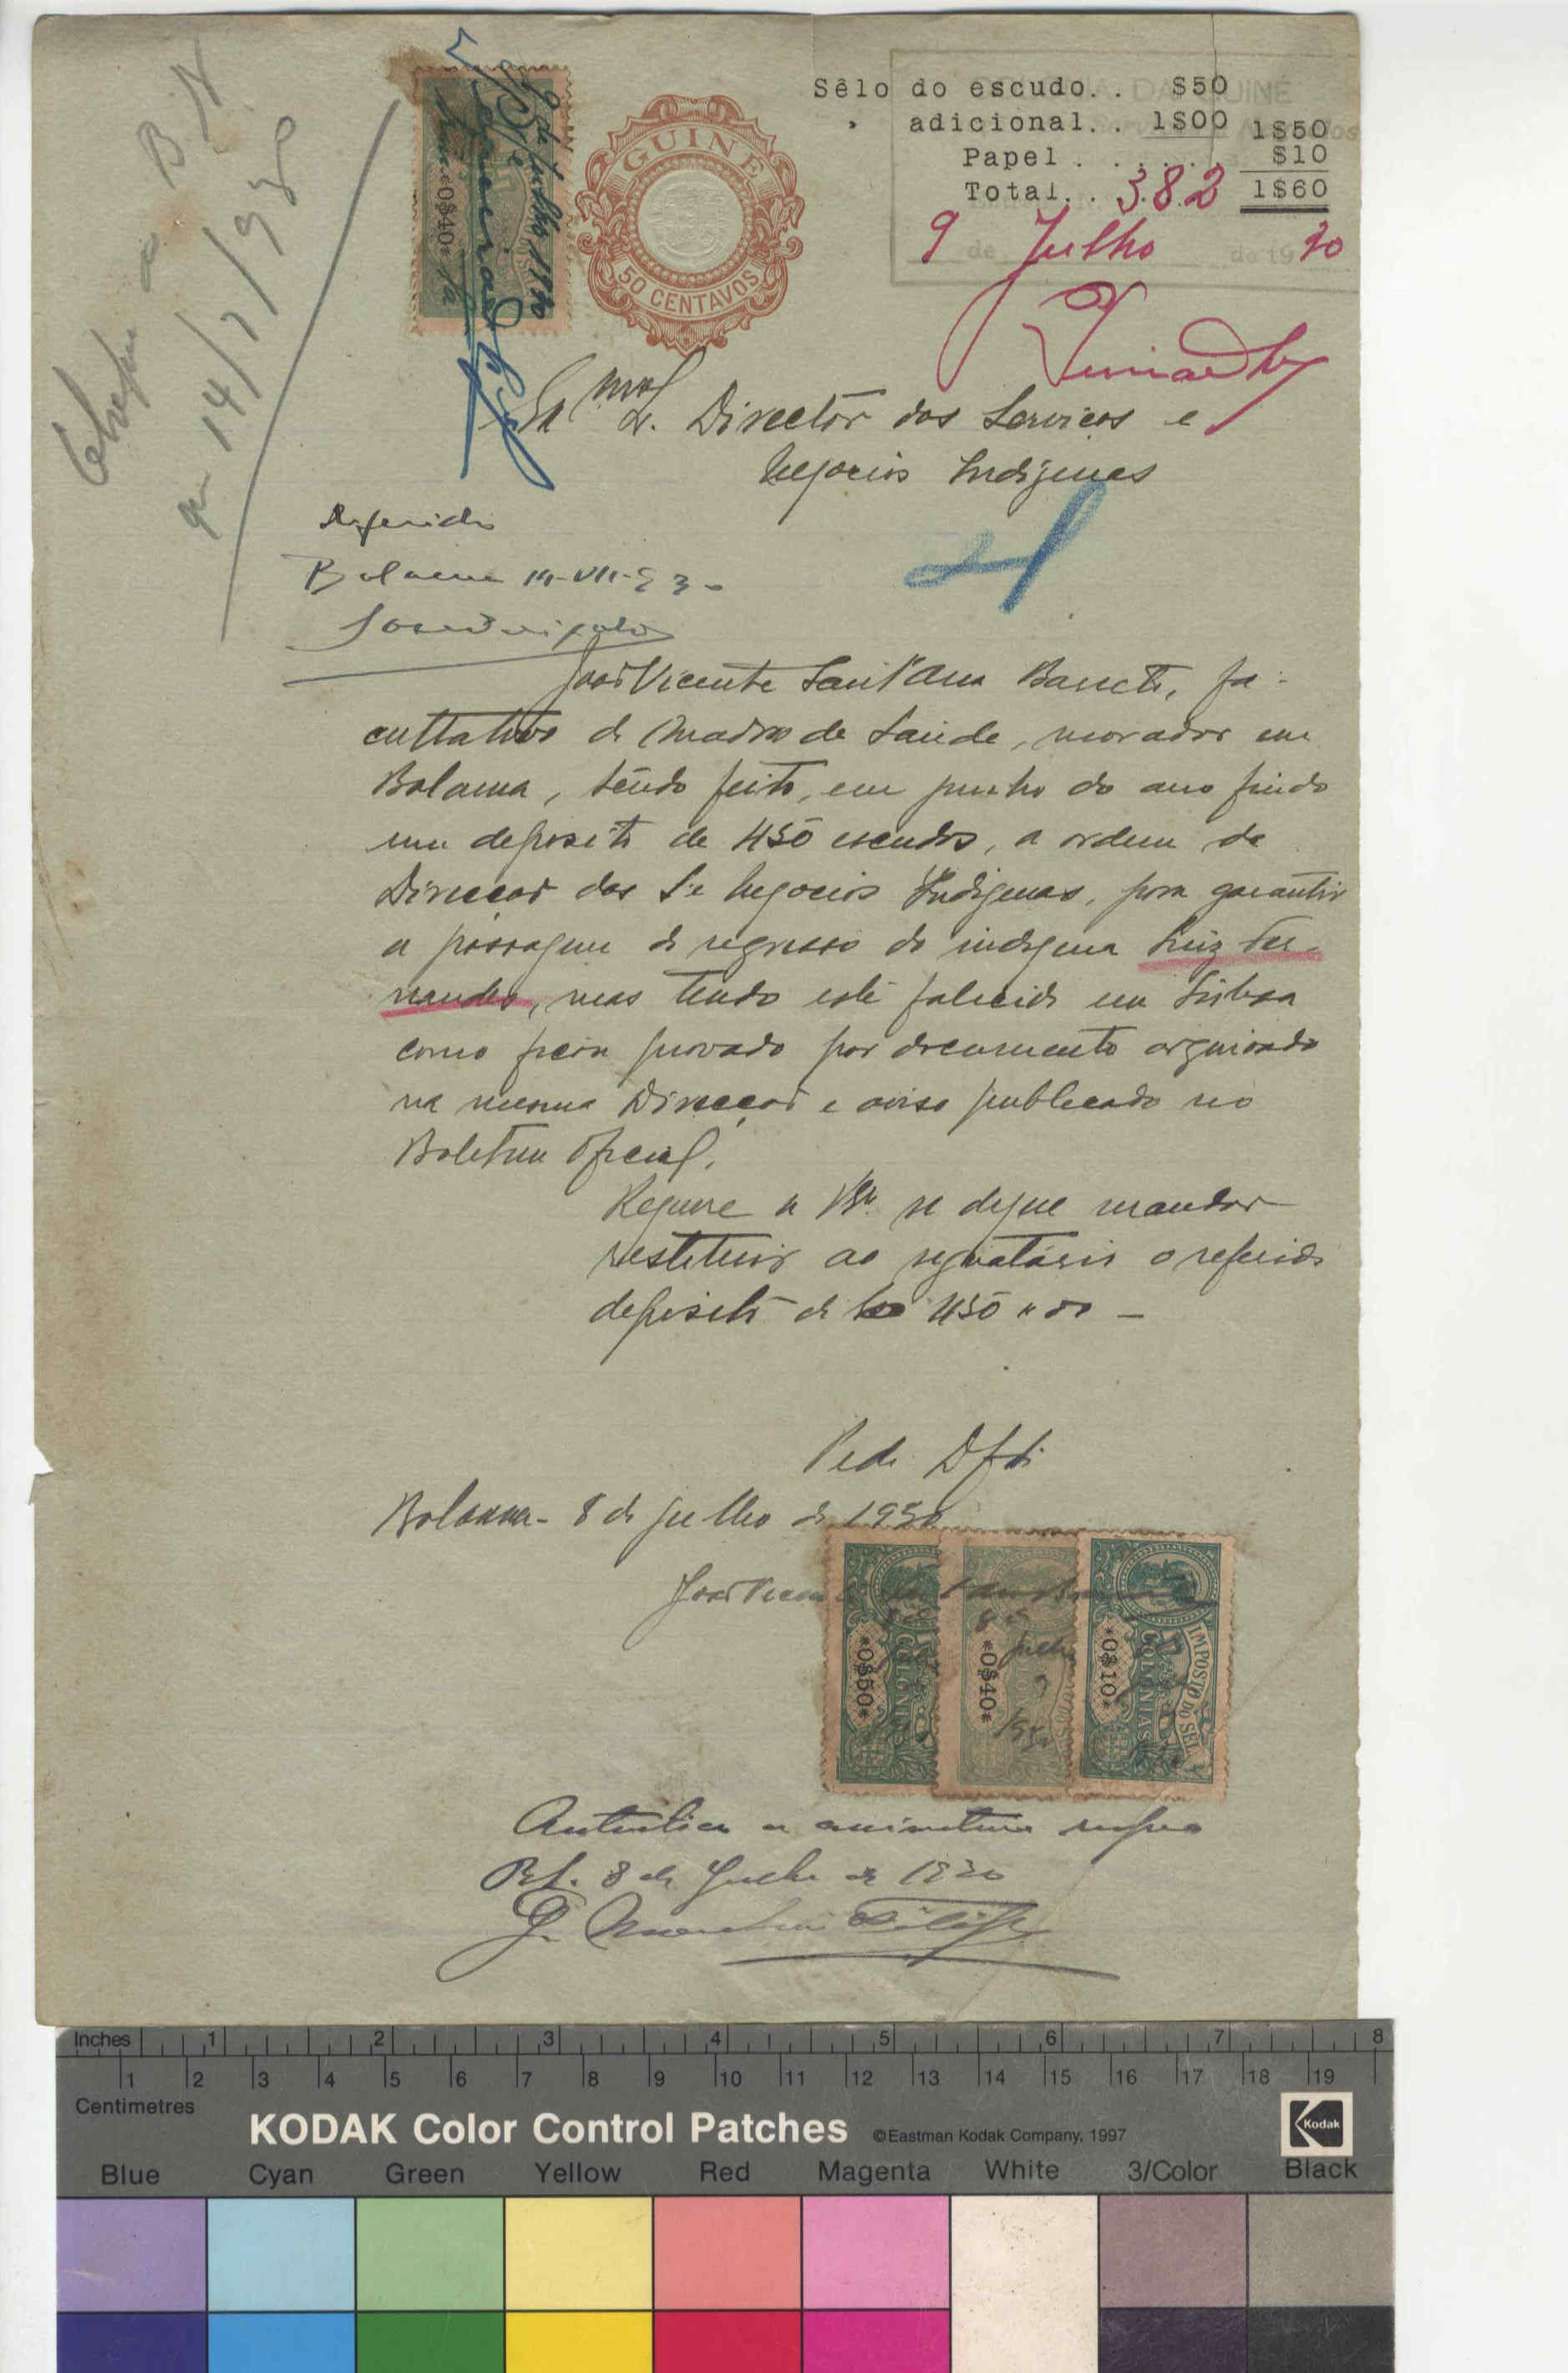 Sêlo do escudo.. $50
adicional.. 1$00 1$50
Papel...... $10
Total.. 1$60
382
COLONIA DA GUINÉ
9 de Julho de 1930
GUINÉ
50 CENTAVOS
*0$40*
9 de Julho 1930
a B N
14/7/930
Exmo Sr. Director dos Serviços e
Negocios Indigenas
Deferido
Bolama 14-VII-930
João Vicente Sant'Ana Barreto, fa-
cultativo do Quadro de Saúde, morador em
Bolama, tendo feito, em junho do ano findo
um deposito de 450 escudos, a ordem da
Direcção dos S. e Negocios Indigenas, para garantir
a passagem de regresso do indigena Luiz Fer-
nandes, mas tendo este falecido em Lisboa
como ficou provado por documento arquivado
na mesma Direcção e aviso publicado no
Boletim Oficial,
Requere a V. Exa. se digne mandar
restituir ao signatário o referido
deposito de 450 $00 —
Pede Dfto
Bolama - 8 de julho de 1930
João Vicente Sant'Ana Barreto
8 de julho 1930
*0$50*
COLONIAS
*0$40*
*0$10*
COLONIAS
IMPOSTO DO SELO
Autentico a assinatura supra
Bol. 8 de Julho de 1930
Inches 1 2 3 4 5 6 7 8
1 2 3 4 5 6 7 8 9 10 11 12 13 14 15 16 17 18 19
Centimetres
KODAK Color Control Patches ©Eastman Kodak Company, 1997 Kodak
Blue Cyan Green Yellow Red Magenta White 3/Color Black